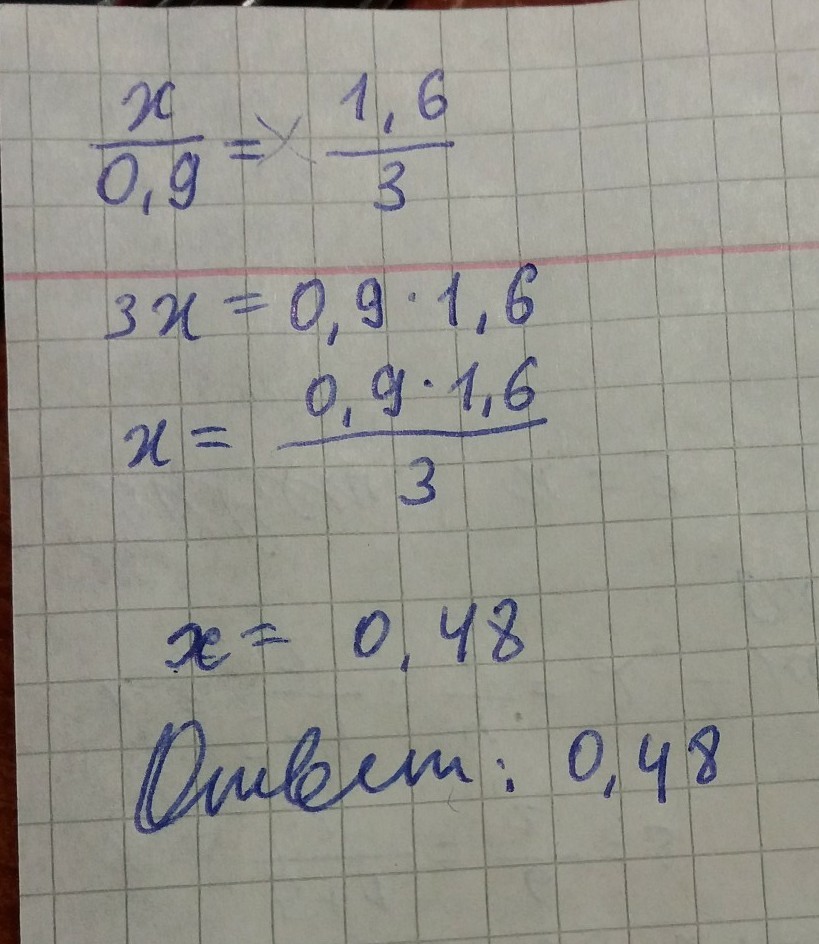 x/0,9 = 1,6/3
3x = 0,9 · 1,6
x = 0,9 · 1,6/3
x = 0,48
Ответ: 0,48